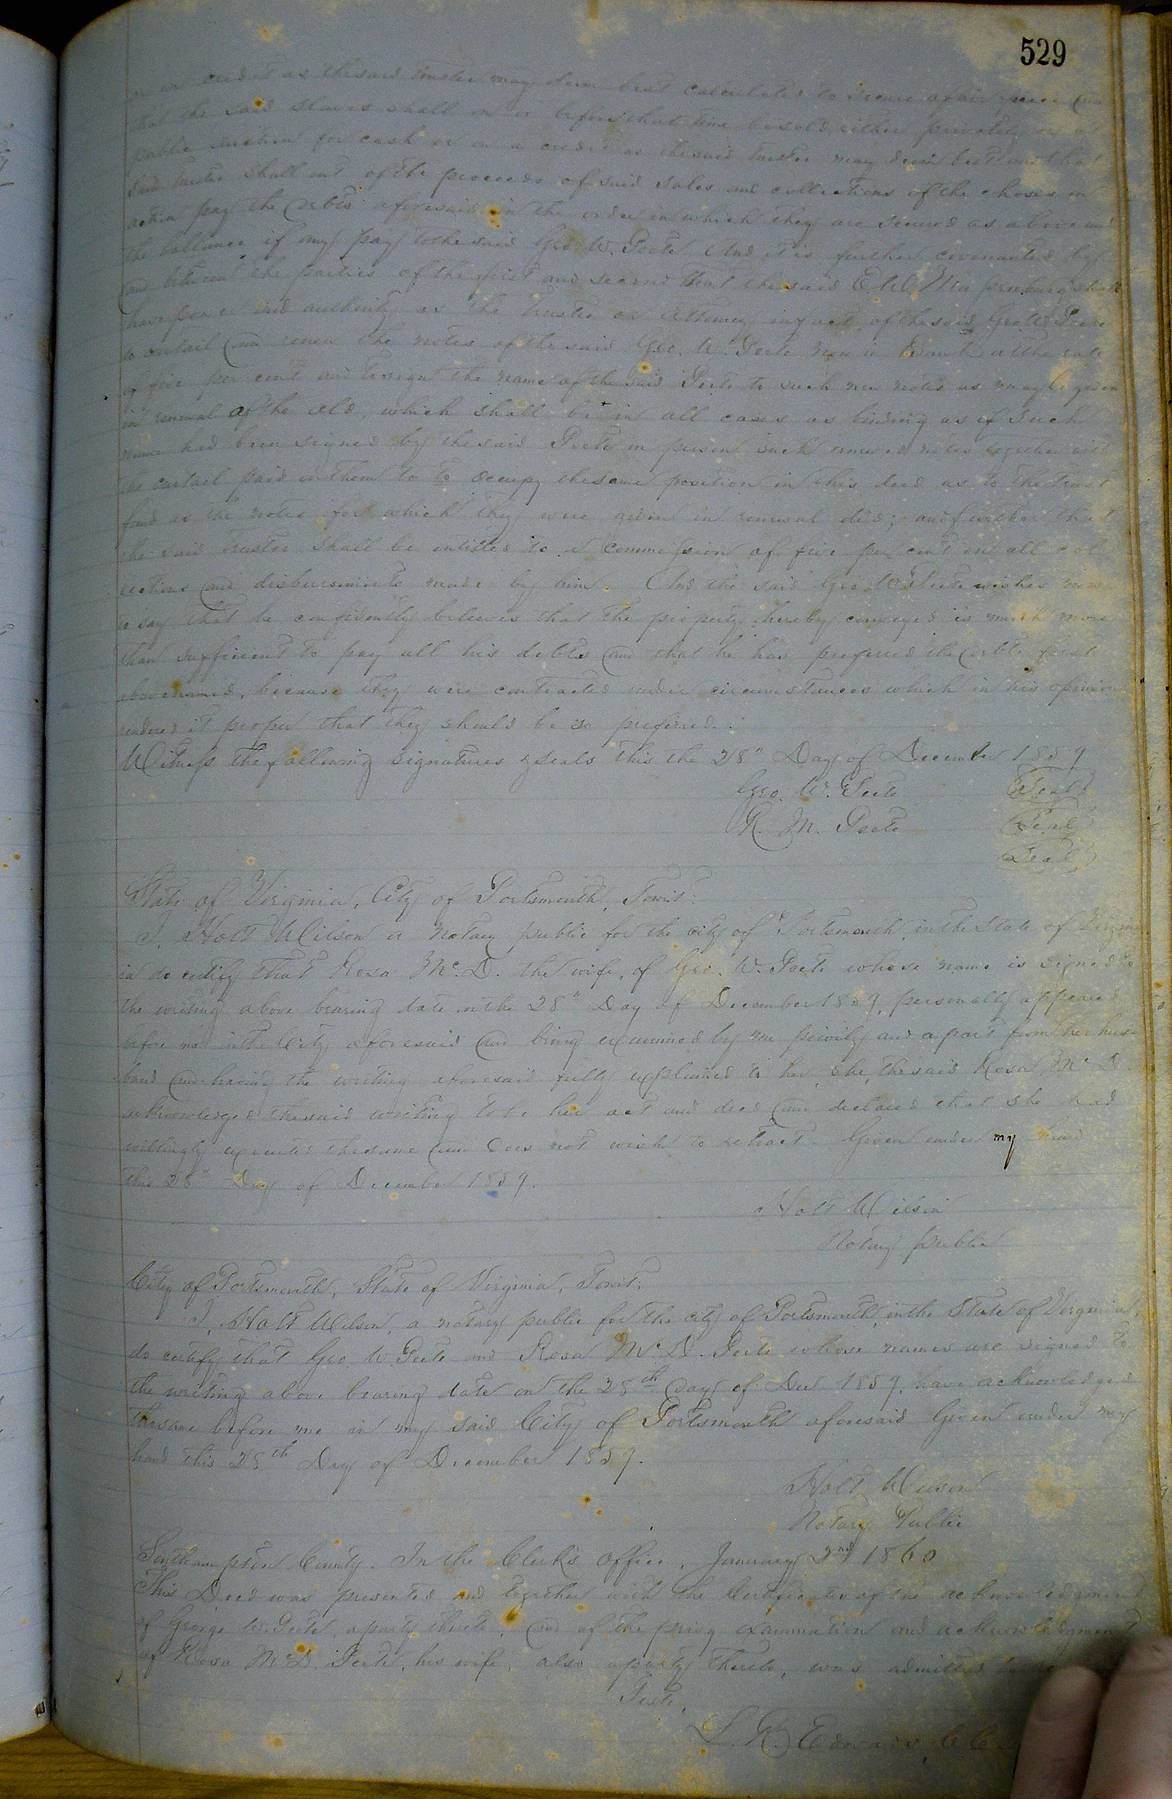 529
credit as the said trustee may deem best calculated to secure a fair price and
that the said slaves shall on or before that time be sold either privately or at
public auction for cash or on a credit as the said trustee may deem best and that
said trustee shall out of the proceeds of said sales and collections of the choses in
action pay the debts aforesaid in the order in which they are secured as above and
the ballance if any pay to the said Geo. W. Peete. And it is further covenanted by
and between the parties of the first and second that the said E. W. shall
have power and authority as the trustee or attorney in fact of the said Geo. W. Peete
to curtail and renew the notes of the said Geo. W. Peete now in Bank at the rate
of five per cent and to sign the name of the said Peete to such new notes as may be given
in renewal of the old, which shall be in all cases as binding as if such
name had been signed by the said Peete in person such renewed notes together with
the curtail paid on them to occupy the same position in this deed as to the trust
fund as the notes for which they were given in renewal did; and further that
the said trustee shall be entitled to a commission of five per cent on all col
lections and disbursements made by him. And the said Geo. W. Peete wishes now
to say that he confidently believes that the property hereby conveyed is much more
than sufficient to pay all his debts and that he has preferred the debts first
above named, because they were contracted under circumstances which in his opinion
rendered it proper that they should be so preferred.
Witness the following signatures & seals this the 28" Day of December 1859
Geo. W. Peete (Seal)
R. M. Peete (Seal)
(Seal)
State of Virginia, City of Portsmouth, Towit:
I, Holt Wilson a Notary public for the city of Portsmouth, in the State of Virgin
ia do certify that Rosa McD. the wife, of Geo. W. Peete whose name is signed to
the writing above bearing date on the 28" Day of December 1859, personally appeared
before me in the City aforesaid and being examined by me privily and apart from her hus
band and having the writing aforesaid fully explained to her, she, the said Rosa McD.
acknowledged the said writing to be her act and deed and declared that she had
willingly executed the same and does not wish to retract. Given under my hand
this 28" Day of December 1859.
Holt Wilson
Notary public
City of Portsmouth, State of Virginia, Towit:
I, Holt Wilson, a notary public for the city of Portsmouth, in the State of Virginia,
do certify that Geo. W Peete and Rosa McD. Peete whose names are signed to
the writing above bearing date on the 28th day of Dec 1859, have acknowledged
the same before me in my said City of Portsmouth aforesaid Given under my
hand this 28th Day of December 1859.
Holt Wilson
Notary Public
Southampton County. In the Clerk's office, January 2nd 1860
This Deed was presented and together with the Certificate of the acknowledgment
of George W. Peete, a party thereto, and of the privy examination and acknowledgment
of Rosa McD. Peete, his wife, also a party thereto, was admitted to
Teste,
L. R. Edwards, CC